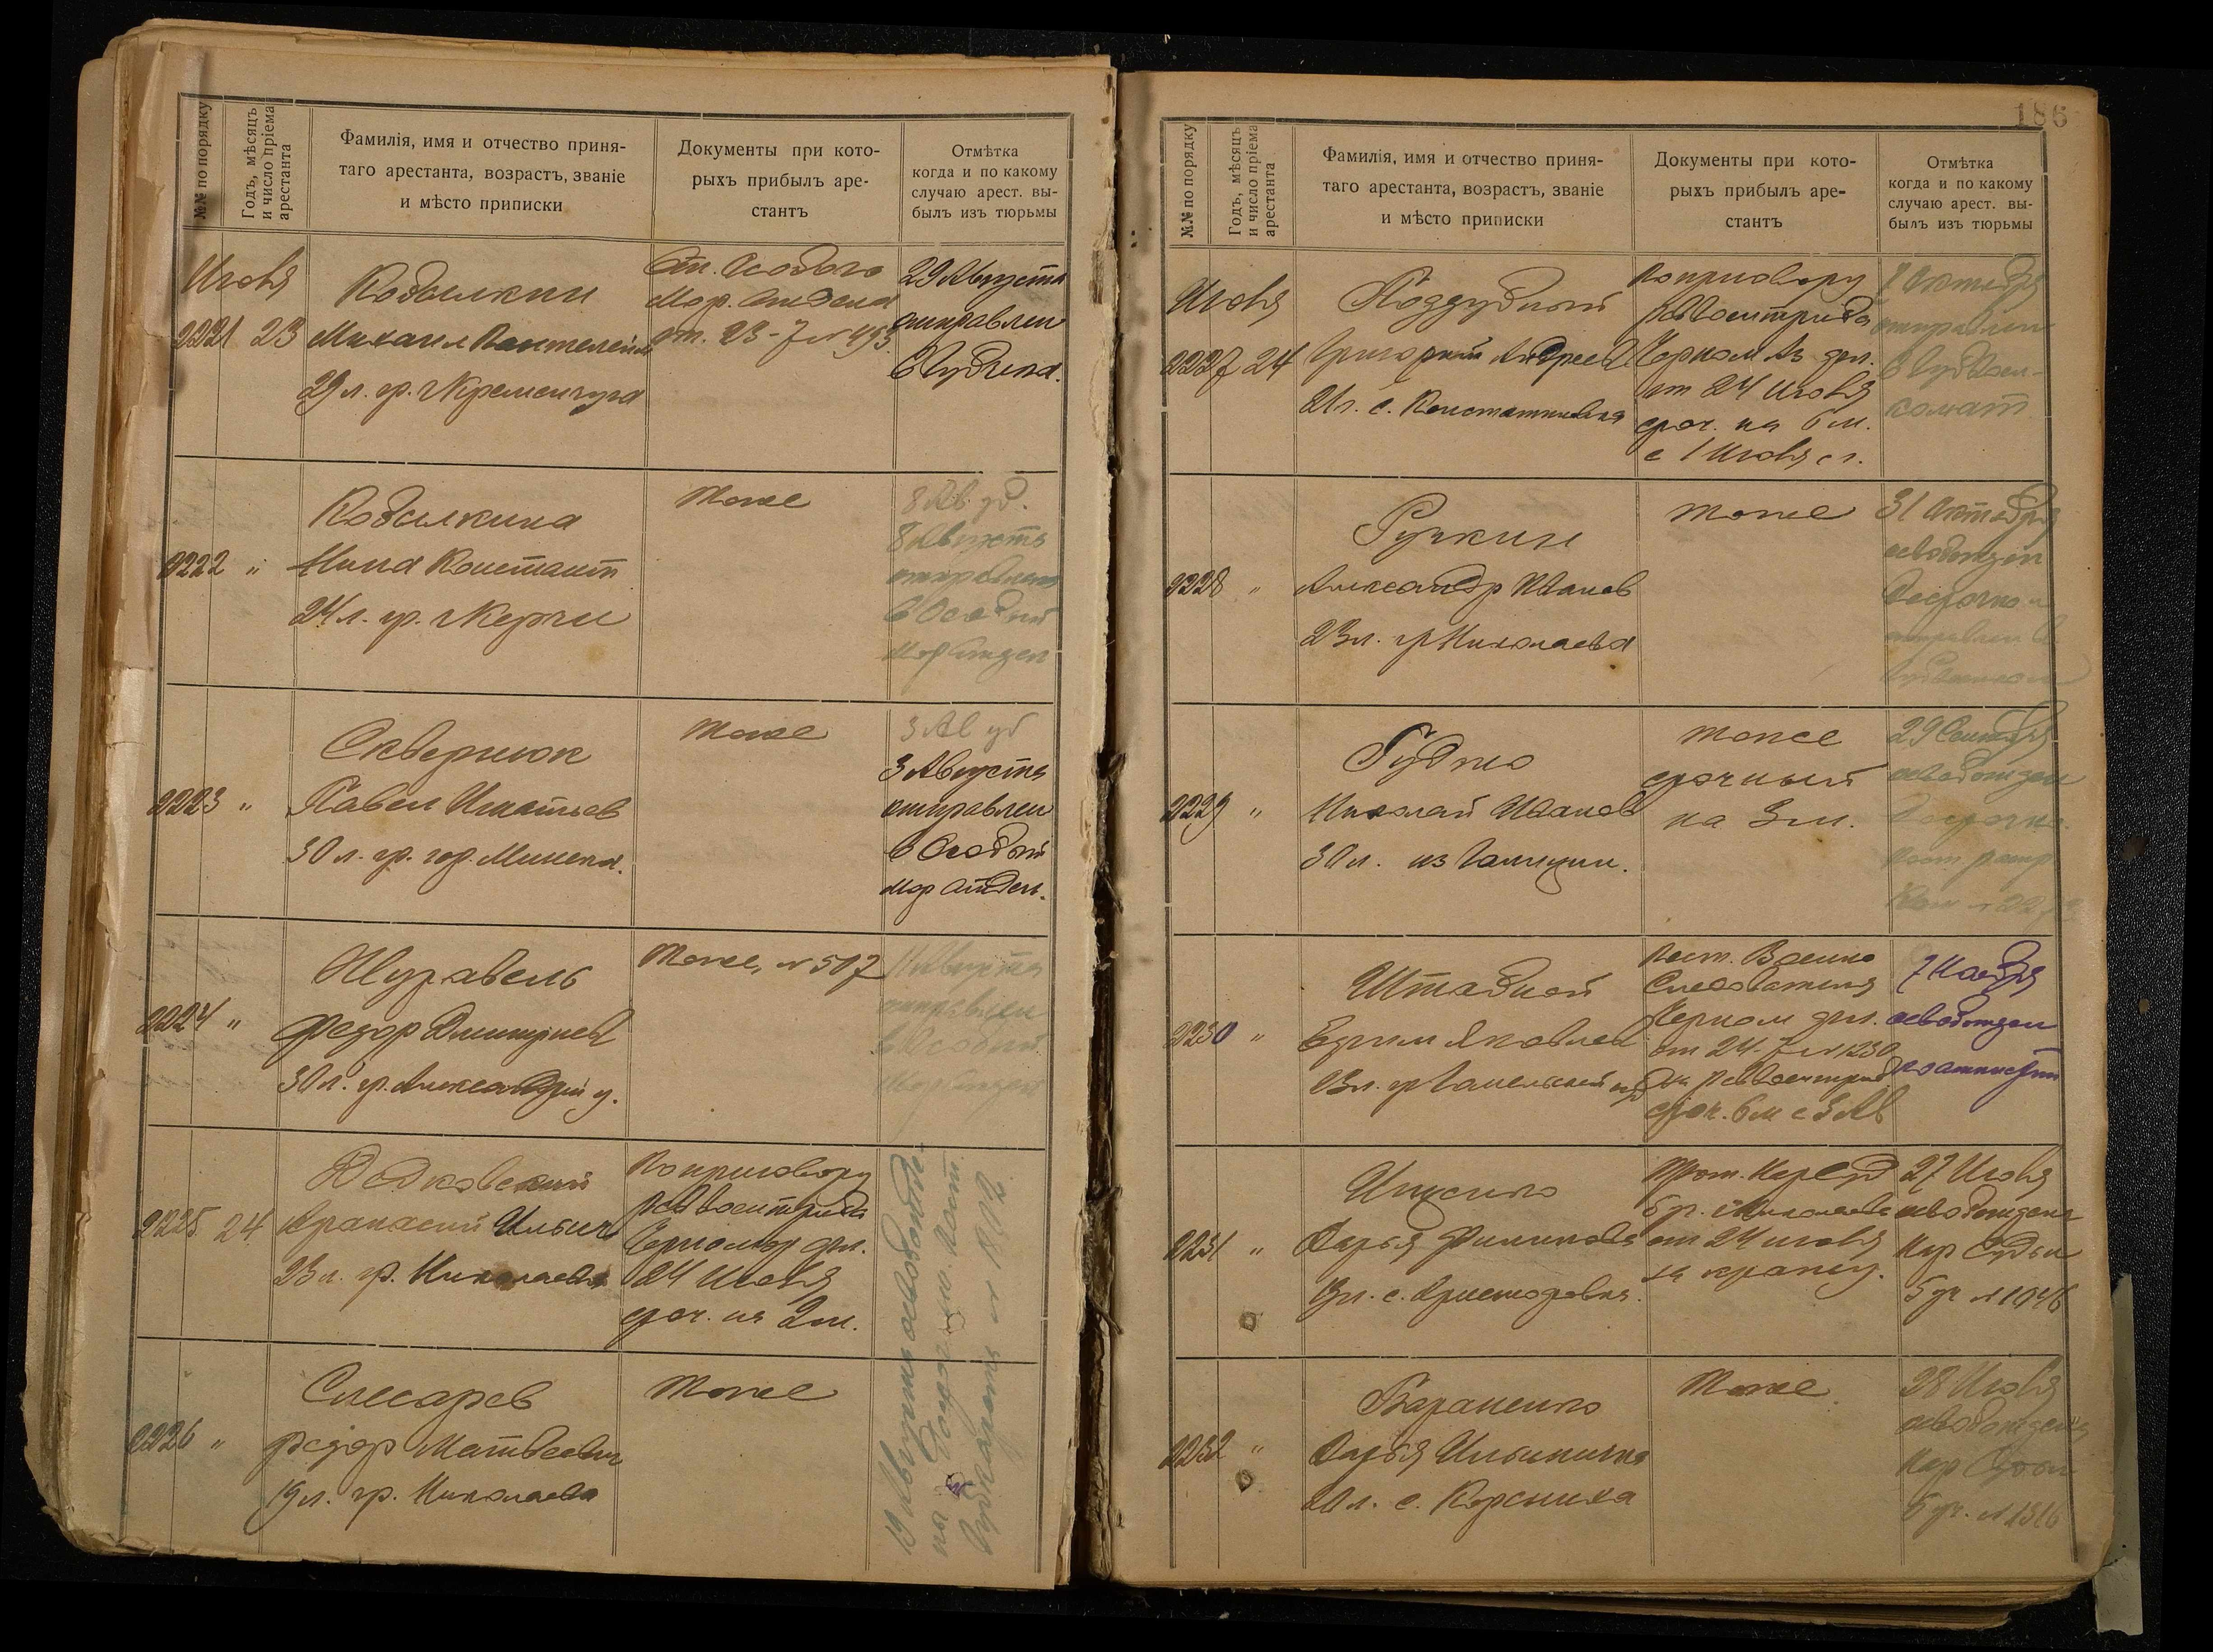 №№ по порядку
Годъ, мѣсяцъ
и число пріема
арестанта
Фамилія, имя и отчество приня-
таго арестанта, возрастъ, званіе
и мѣсто приписки
Документы при кото-
рыхъ прибылъ аре-
стантъ
Отмѣтка
когда и по какому
случаю арест. вы-
былъ изъ тюрьмы
Июля
2221 23
Кобылкин
Михаил Пантелейм
29 л. гр. г Кременчуга
От. Особого
Мор. Отдела
от. 23-7 № 493
29 Августа
отправлен
в Губчека.
2222 "
Кобылкина
Нина Констант
24 л. гр. г Керчи
тоже
8 Ав. уб.
8 Августа
отправлена
в Особый
Мор Отдел
2223 "
Сквернюк
Павел Игнатьев
30 л. гр. гор. Минска.
тоже
3 Ав уб
3 Августа
отправлен
в Особый
Мор Отдел.
2224 "
Журавель
Федор Дмитриев
30 л. гр. Александрий у.
тоже, № 507
Августа
отправлен
в Особый
Мор Отдел
2225 24
Афанасий Ильич
23 л. гр. Николаева
По приговору
Реввоентриба
24 Июля
сроч. на 2 м.
2226 "
Слесарев
Федор Матвеевич
19 л. гр. Николаева
тоже
19 Августа освобожде-
ны
186
№№ по порядку
Годъ, мѣсяцъ
и число пріема
арестанта
Фамилія, имя и отчество приня-
таго арестанта, возрастъ, званіе
и мѣсто приписки
Документы при кото-
рыхъ прибылъ аре-
стантъ
Отмѣтка
когда и по какому
случаю арест. вы-
былъ изъ тюрьмы
Июля
2227 24
Поддубный
Григорий Андреев
21 г. с. Константиновка
По приговору
Реввоентриба
от 24 Июля
сроч. на 6 м.
с 1 Июля с г.
Октября
отправлен
в Губвоен-
комат
2228 "
Ручкин
Александр Иванов
23 л. гр Николаева
тоже
31 Октября
освобожден
Досрочно и
отправлен в
Губвоенком
2229 "
Рудько
Николай Иванов
30 л. из Галиции.
тоже
срочный
на 3 м.
29 Сентября
освобожден
Досрочно
2230 "
Штабной
Ефим Яковлев
Пост. Военно
Следователя
от 24-7 № 1230
сроч. 6 м с 3 Ав
7 Ноября
освобожден
по амнистии
2231 "
Ищенко
Дарья Филипова
Прот. Нарсуд
5 р. г Николаева
от 24 июля
за кражу.
27 Июля
освобождена
Нар Судьи
5 уч № 1046
2232 "
Бараненко
Дарья Ильинична
20 л. с. Корсниха
тоже
28 Июля
освобождена
Нар Судьи
5 уч. № 1316